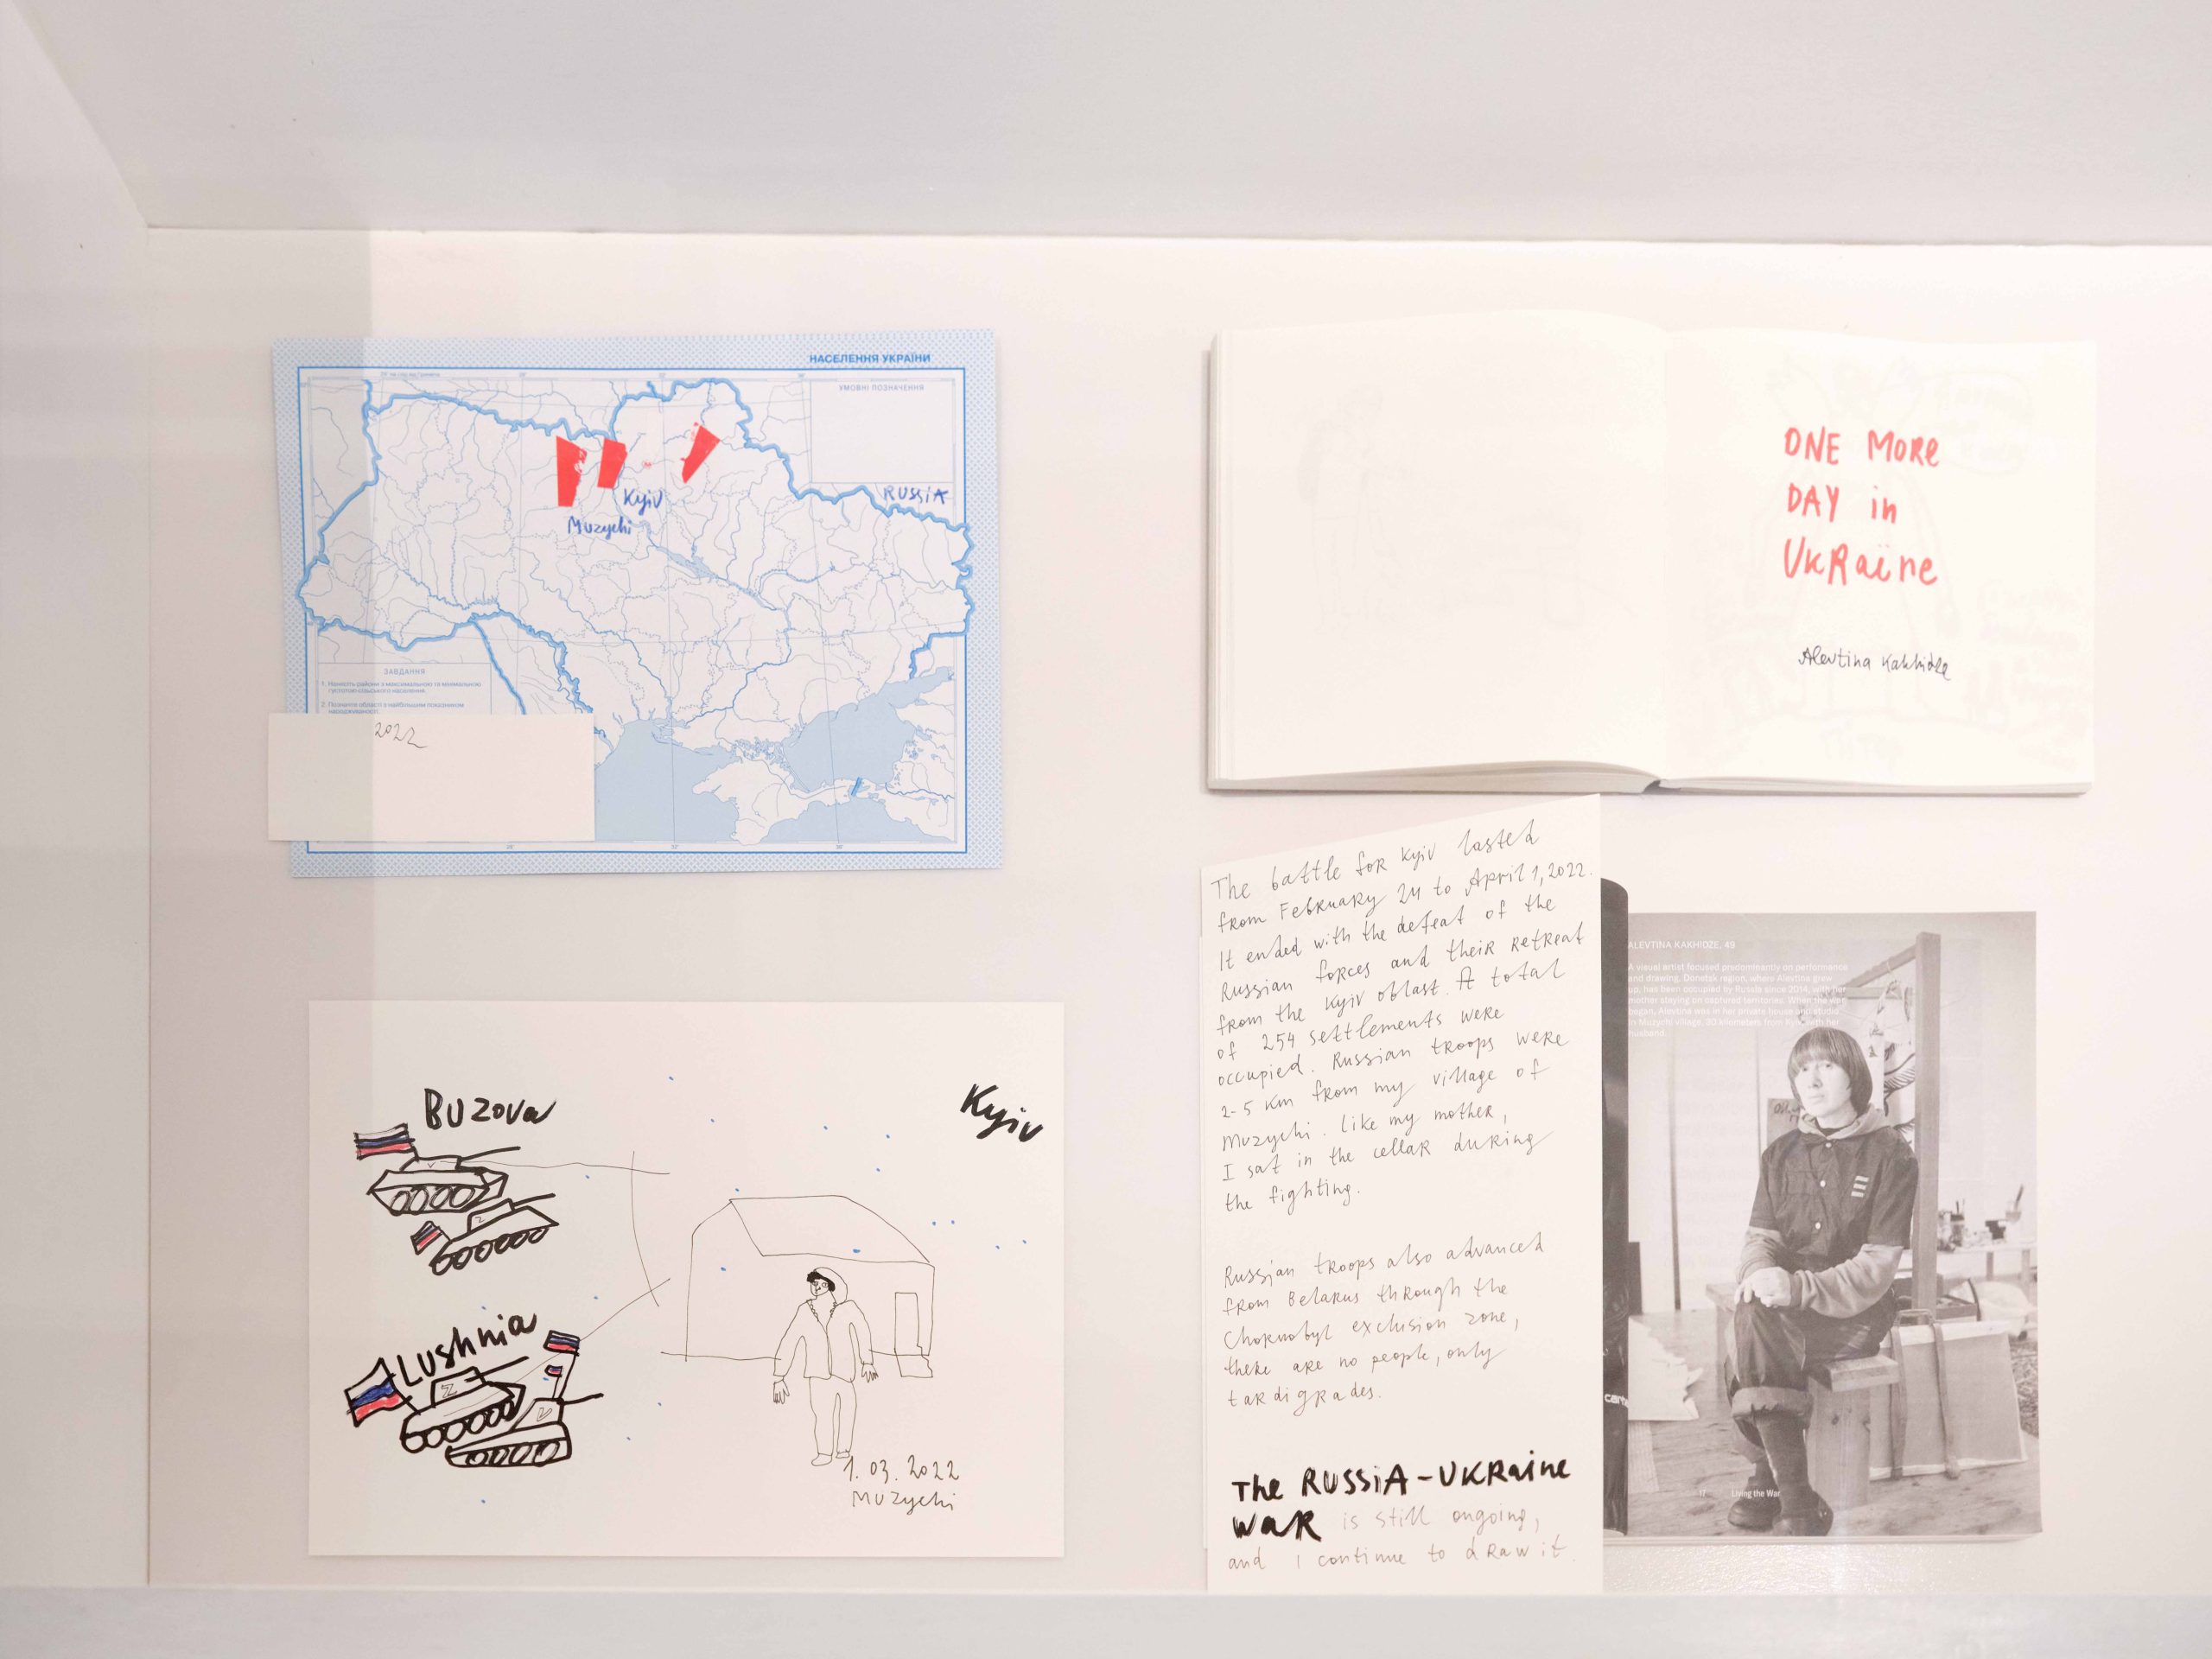 НАСЕЛЕННЯ УКРАЇНИ
УМОВНІ ПОЗНАЧЕННЯ
RUSSIA
Kyiv
Muzychi
ЗАВДАННЯ
1. Нанесіть райони з максимальною та мінімальною
густотою сільського населення.
2. Позначте області з найбільшим показником
народжуваності.
2022
ONE MORe
DAY in
UkRaïne
Alevtina Kakhidze
Buzova
Kyiv
V
Z
Lushnia
Z
V
1.03.2022
Muzychi
The battle for Kyiv lasted
from February 24 to April 1, 2022.
It ended with the defeat of the
Russian forces and their retreat
from the Kyiv oblast. A total
of 254 settlements were
occupied. Russian troops were
2-5 km from my village of
Muzychi. Like my mother,
I sat in the cellar during
the fighting.
Russian troops also advanced
from Belarus through the
Chornobyl exclusion zone,
there are no people, only
tardigrades.
The RUSSIA-UKRaine
WaR is still ongoing,
and I continue to draw it.
ALEVTINA KAKHIDZE, 49
A visual artist focused predominantly on performance
and drawing. Donetsk region, where Alevtina grew
up, has been occupied by Russia since 2014, with her
mother staying on captured territories. When the war
began, Alevtina was in her private house and studio
in Muzychi village, 30 kilometers from Kyiv, with her
husband.
17 Living the War